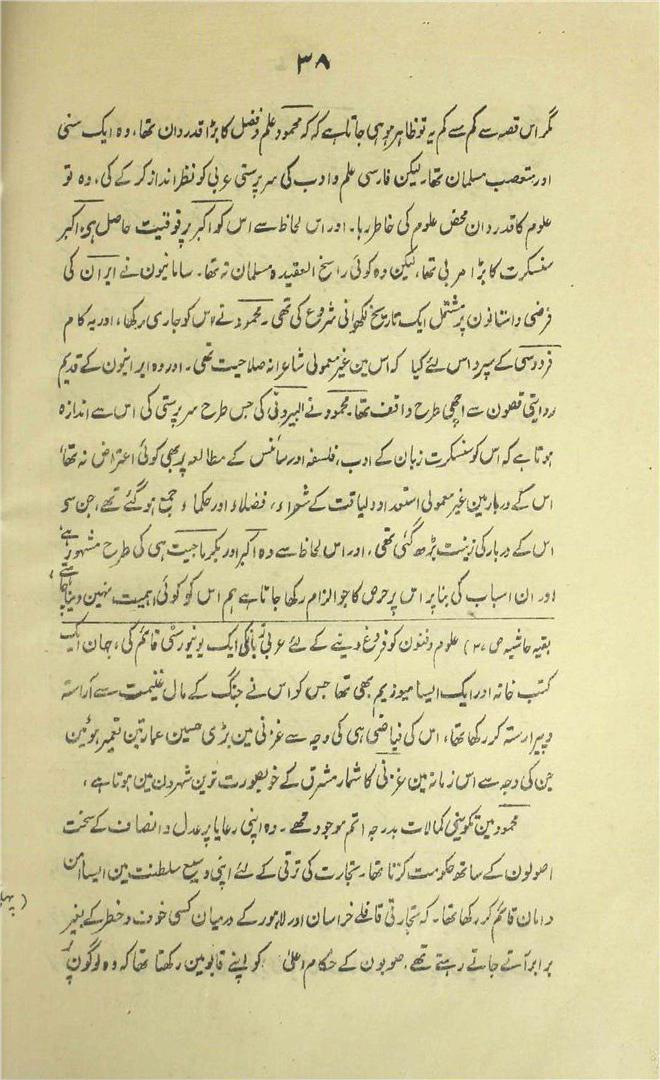 ۳۸
مگر اس قصہ سے کم سے کم یہ تو ظاہر ہو ہی جاتا ہے کہ محمود علم و فضل کا بڑا قدردان تھا، وہ ایک سنی
اور متعصب مسلمان تھا۔ لیکن فارسی علم و ادب کی سرپرستی عربی کو نظر انداز کر کے کی، وہ تو
علوم کا قدردان محض علوم کی خاطر رہا۔ اور اس لحاظ سے اس کو اکبر پر فوقیت حاصل ہی، اکبر
سنسکرت کا بڑا مربی تھا، لیکن وہ کوئی راسخ العقیدہ مسلمان نہ تھا۔ سامانیون نے ایران کی
فرضی داستانون پر مشتمل ایک تاریخ لکھوانی شروع کی تھی۔ محمود نے اس کو جاری رکھا، اور یہ کام
فردوسی کے سپرد اس لئے کیا کہ اس مین غیر معمولی شاعرانہ صلاحیت تھی۔ اور وہ ایرانیون کے قدیم
روایتی قصون سے اچھی طرح واقف تھا۔ محمود نے البیرونی کی جس طرح سرپرستی کی اس سے اندازہ
ہوتا ہے کہ اس کو سنسکرت زبان کے ادب، فلسفہ اور سائنس کے مطالعہ پر بھی کوئی اعتراض نہ تھا،
اس کے دربار مین غیر معمولی استعداد و لیاقت کے شعراء، فضلاء اور حکماء جمع ہو گئے تھے، جن سے
اس کے دربار کی زینت بڑھ گئی تھی، اور اس لحاظ سے وہ اکبر اور بکرماجیت ہی کی طرح مشہور ہے،
اور ان اسباب کی بنا پر اس پر حرص کا جو الزام رکھا جاتا ہے ہم اس کو کوئی اہمیت نہین دینا چاہتے،
بقیہ حاشیہ ص ۳۷) علوم و فنون کو فروغ دینے کے لئے غزنی ہی ایک یونیورسٹی قائم کی، جہان ایک
کتب خانہ اور ایک ایسا میوزیم بھی تھا جس کو اس نے جنگ کے مال غنیمت سے آراستہ
و پیراستہ کر رکھا تھا، اس کی فیاضی ہی کی وجہ سے غزنی مین بڑی حسین عمارتین تعمیر ہوئین
جن کی وجہ سے اس زمانہ مین غزنی کا شمار مشرق کے خوبصورت ترین شہرون مین ہوتا ہے،
محمود مین تکوینی کمالات بدرجہ اتم موجود تھے۔ وہ اپنی رعایا پر عدل و انصاف کے سخت
اصولون کے ساتھ حکومت کرتا تھا۔ تجارت کی ترقی کے لئے اپنی وسیع سلطنت مین ایسا امن
و امان قائم کر رکھا تھا۔ کہ تجارتی قافلے خراسان اور لاہور کے درمیان کسی خوف و خطر کے بغیر
برابر آتے جاتے رہتے تھے، صوبون کے حکام اعلیٰ کو اپنے قابو مین رکھتا تھا کہ وہ لوگون پر